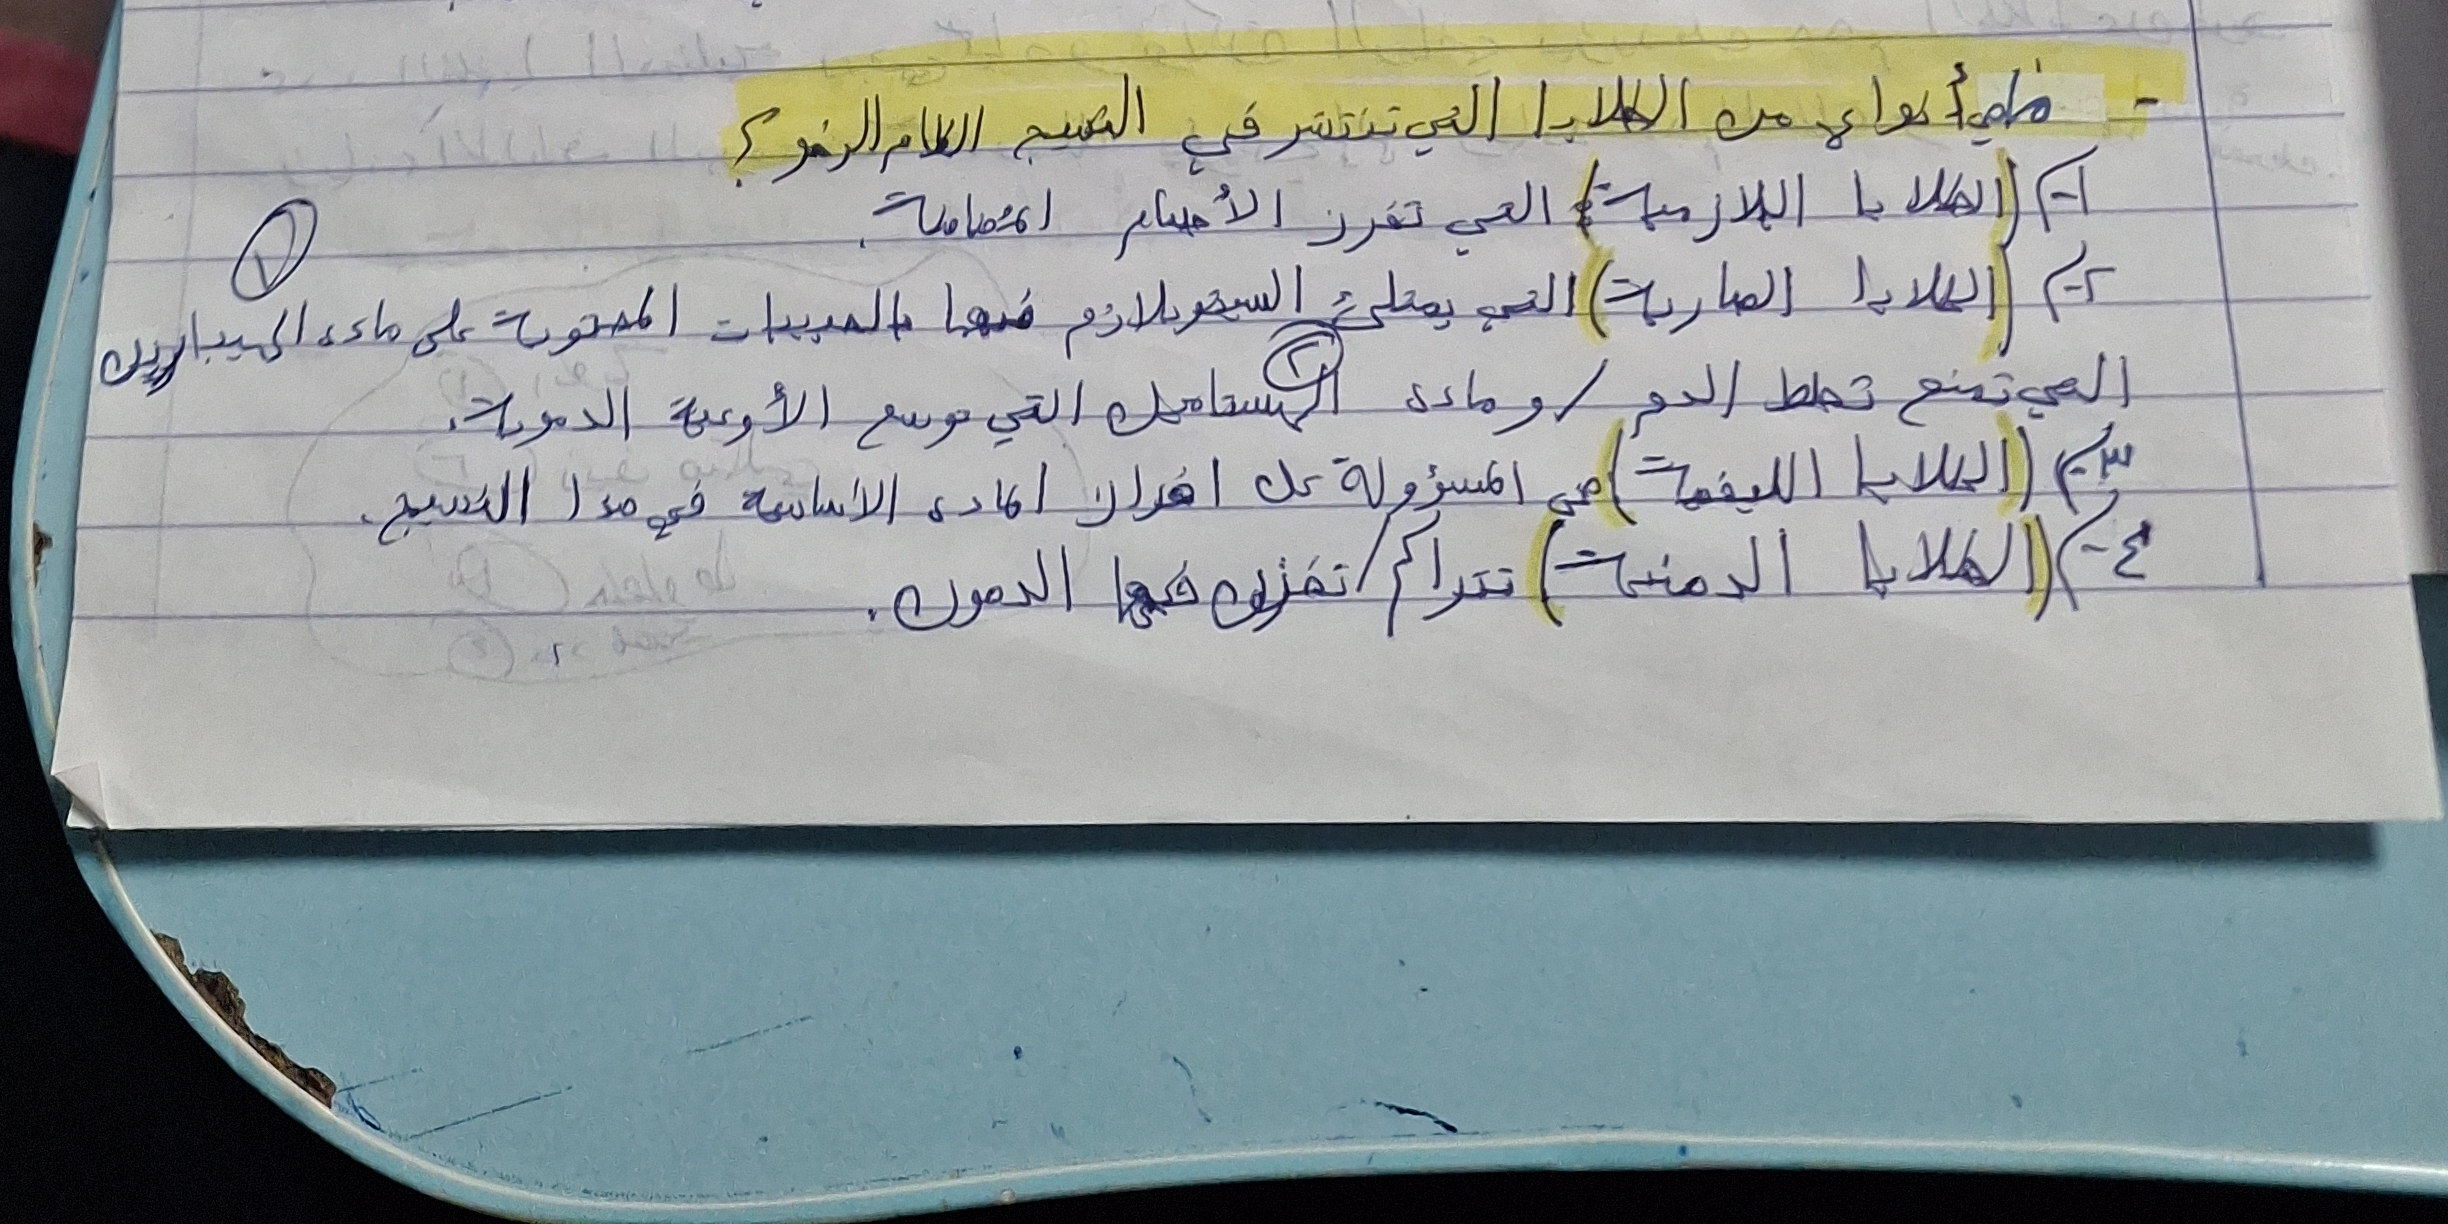 - ماهي أنواع من الخلايا التي تنتشر في النسيج الضام الرخو؟
١- (الخلايا البلازمية) التي تفرز الأجسام المضادة.
٢- (الخلايا الصارية) التي يمتلئ السيتوبلازم فيها بالحبيبات المحتوية على مادة الهيبارين ١
التي تمنع تخلط الدم / و مادة الهستامين ٢ التي توسع الأوعية الدموية.
٣- (الخلايا الليفية) هي المسؤولة عن افراز المادة الأساسية في هذا النسيج.
٤- (الخلايا الدهنية) تتراكم / تخزن فيها الدهون.